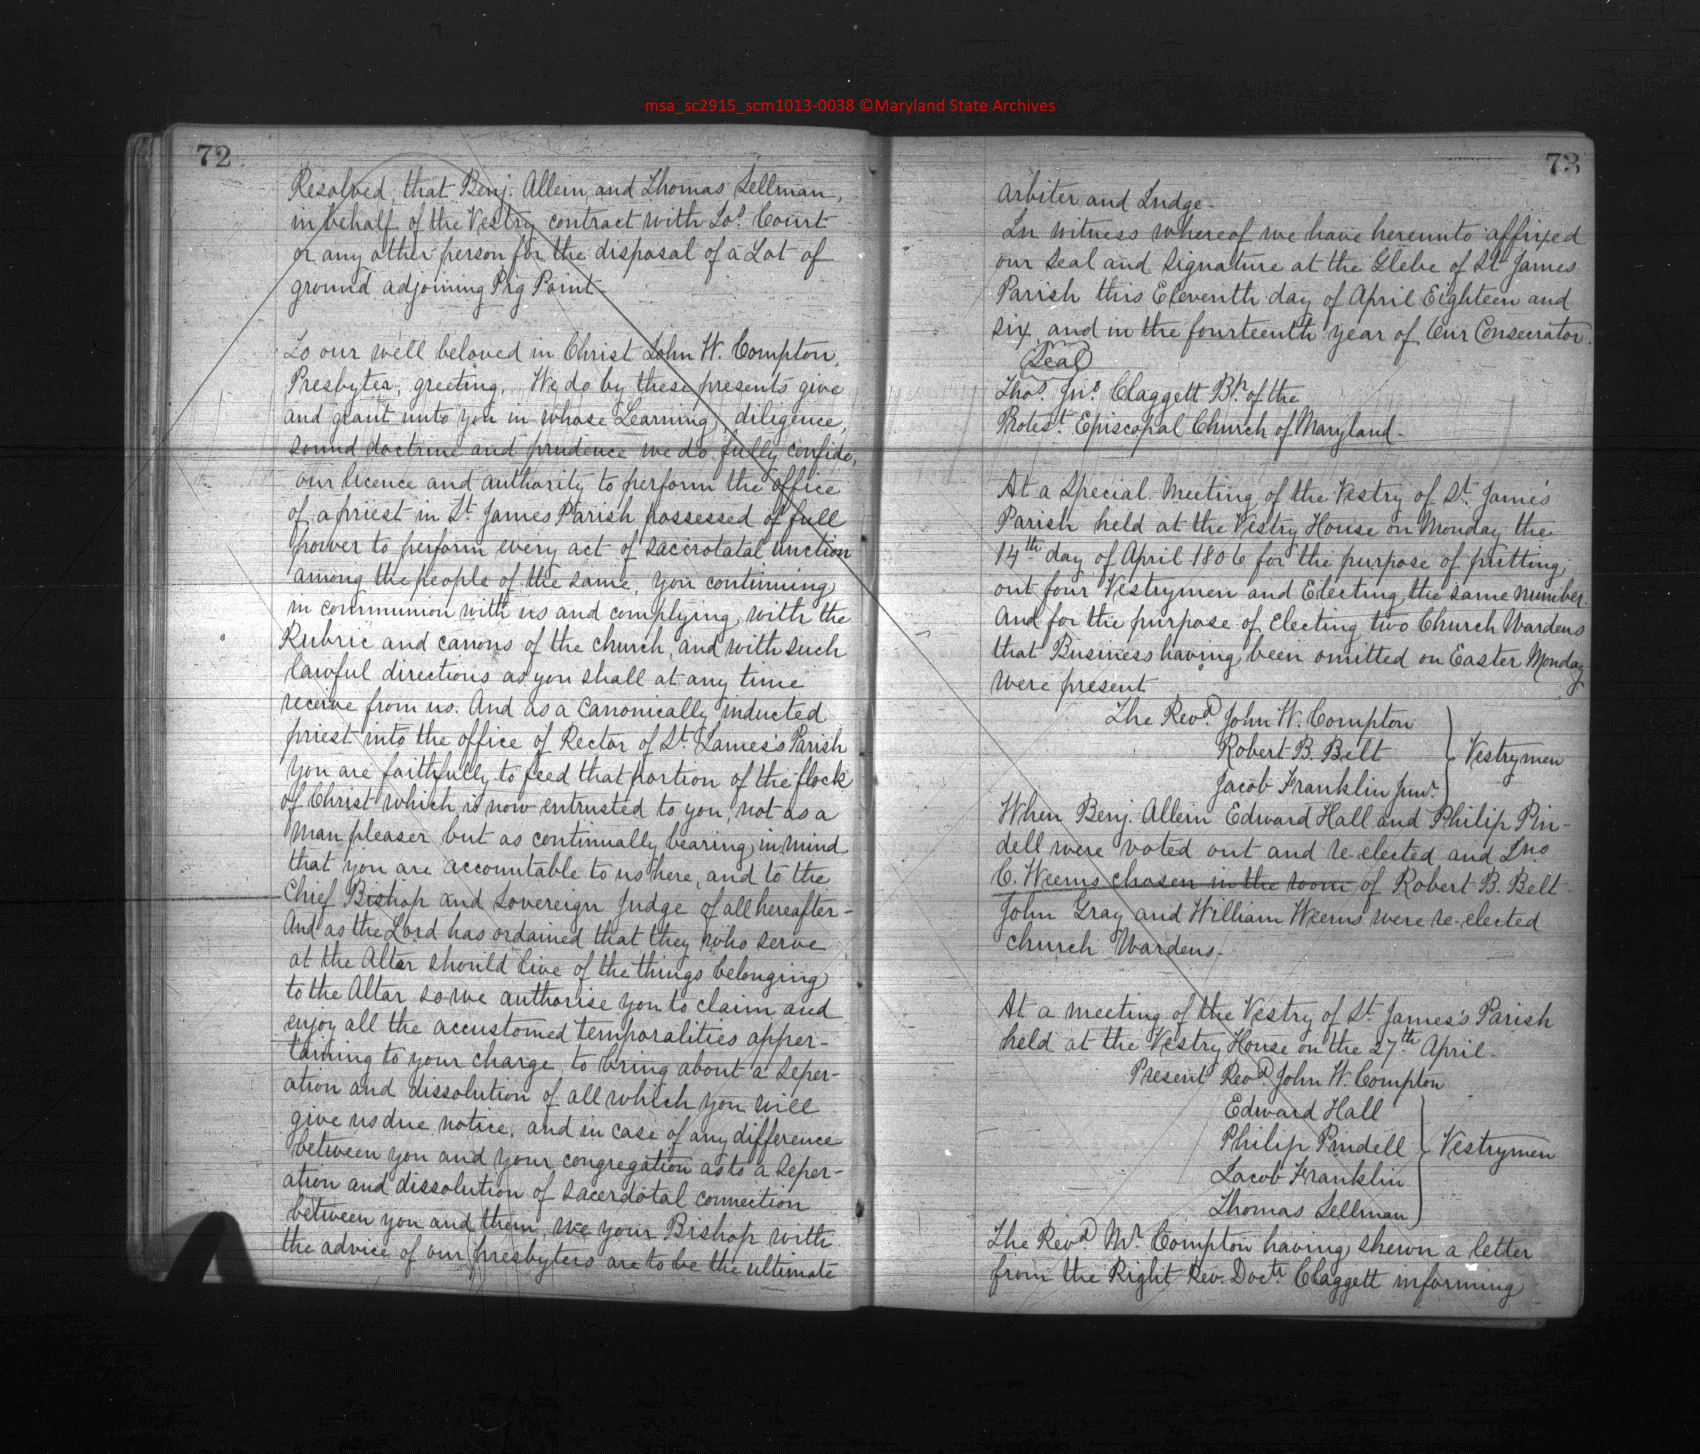 msa_sc2915_scm1013-0038 ©Maryland State Archives
72
Resolved, that Benj. Allein, and Thomas Sellman,
in behalf of the Vestry contract with Jos. Court
or any other person for the disposal of a Lot of
ground adjoining Pig Point-
To our well beloved in Christ John W. Compton,
Presbyter, greeting, We do by these presents give
and grant unto you in whose Learning, diligence,
sound doctrine and prudence we do fully confide,
our licence and authority to perform the office
of a priest in St James Parish possessed of full
power to perform every act of saccrotatal unction
among the people of the same, you continuing
in communion with us and complying with the
Rubric and canons of the church, and with such
lawful directions as you shall at any time
receive from us. And as a canonically inducted
priest into the office of Rector of St. James's Parish
you are faithfully to feed that portion of the flock
of Christ which is now entrusted to you, not as a
man pleaser but as continually bearing in mind
that you are accountable to us here, and to the
Chief Bishop and Sovereign Judge of all hereafter-
And as the Lord has ordained that they who serve
at the Altar should live of the things belonging
to the Altar so we authorise you to claim and
enjoy all the accustomed temporalities apper-
taining to your charge, to bring about a Seper-
ation and dissolution of all which you will
give us due notice, and in case of any difference
between you and your congregation as to a Seper-
ation and dissolution of Sacerdotal connection
between you and them, we your Bishop with
the advice of our presbyters are to be the ultimate
73
Arbiter and Judge-
In witness whereof we have hereunto affixed
our Seal and Signature at the Glebe of St James
Parish this Eleventh day of April Eighteen and
six and in the fourteenth year of Our Consecrator.
Seal
Thos. Jno. Claggett Bp. of the
Protest. Episcopal Church of Maryland-
At a Special Meeting of the Vestry of St. James
Parish held at the Vestry House on Monday the
14th day of April 1806 for the purpose of putting
out four Vestrymen and Electing the same number.
And for the purpose of electing two Church Wardens
that Business having been omitted on Easter Monday
were present
The Revd. John W. Compton
Robert B. Belt
Vestrymen
Jacob Franklin junr.
When Benj. Allein Edward Hall and Philip Pin-
dell were voted out and re elected and Jno
C. Weems chosen in the room of Robert B. Belt-
John Gray and William Weems were re-elected
church Wardens-
At a meeting of the Vestry of St. James's Parish
held at the Vestry House on the 27th April-
Present Revd. John W. Compton
Edward Hall
Philip Pindell
Vestrymen
Jacob Franklin
Thomas Sellman
The Revd Mr. Compton having shewn a letter
from the Right Rev. Doctr Claggett informing